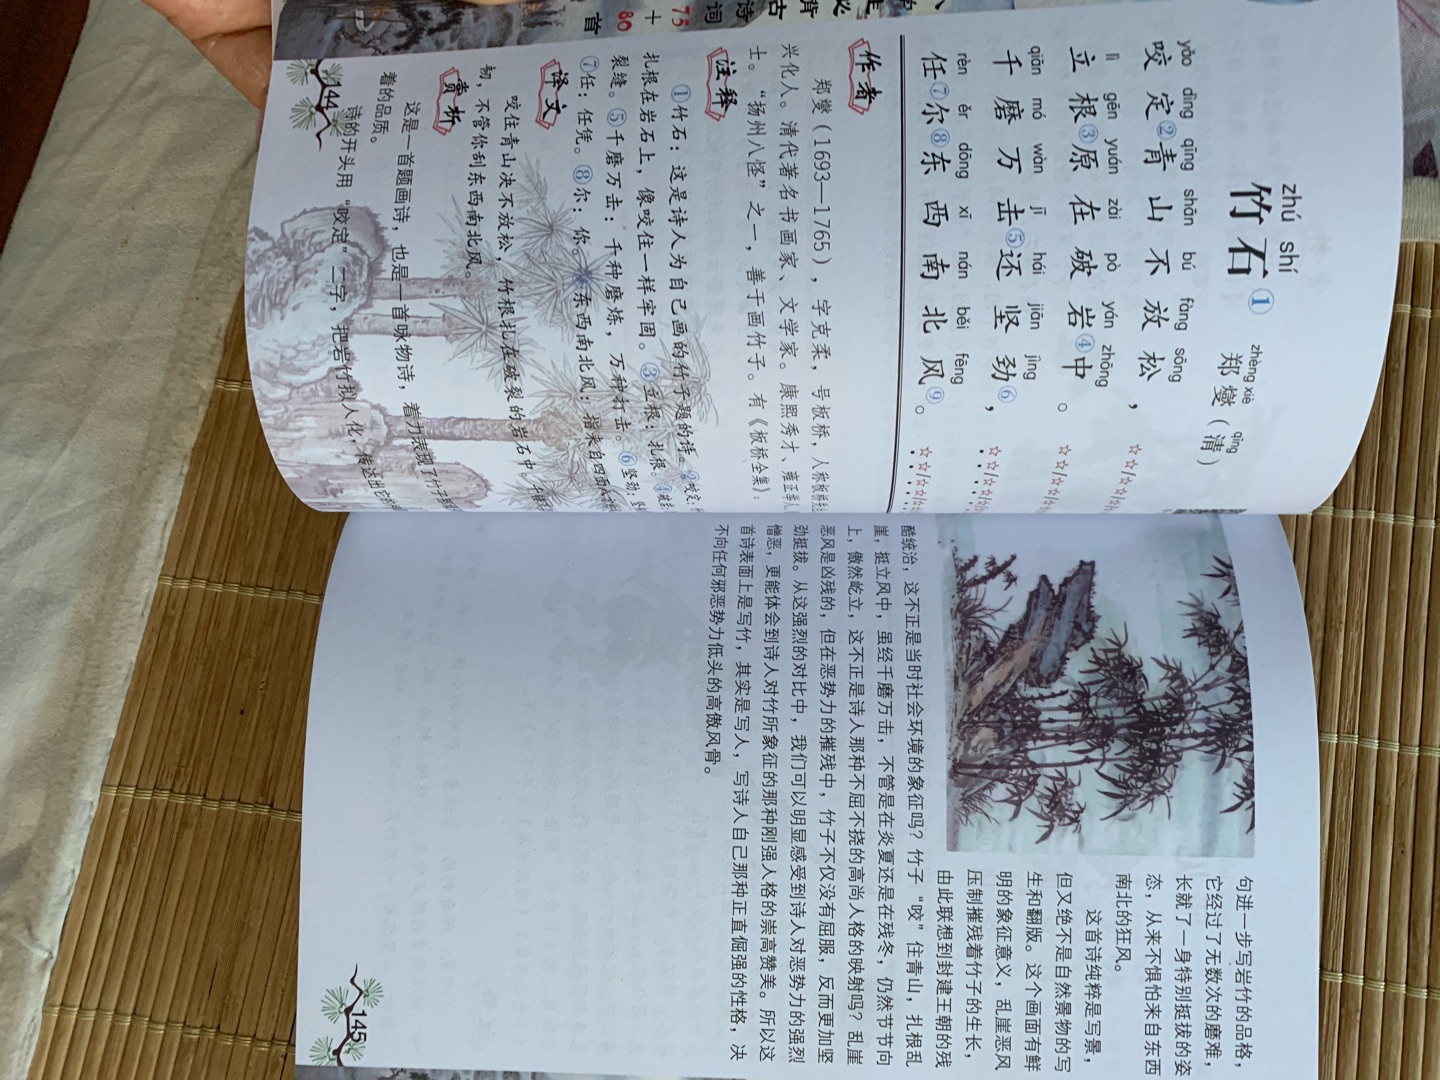 zhú shí
竹石①
zhèng xiè qīng
郑燮（清）
yǎo dìng qīng shān bú fàng sōng
咬定②青山不放松，
lì gēn yuán zài pò yán zhōng
立根③原在破岩④中。
qiān mó wàn jī hái jiān jìng
千磨万击⑤还坚劲⑥，
rèn ěr dōng xī nán běi fēng
任⑦尔⑧东西南北风⑨。
作者
郑燮（1693—1765），字克柔，号板桥，人称板桥先生
兴化人。清代著名书画家、文学家。康熙秀才、雍正举人
士。“扬州八怪”之一，善于画竹子。有《板桥全集》。
注释
①竹石：这是诗人为自己画的竹子题的诗。②咬定：
扎根在岩石上，像咬住一样牢固。③立根：扎根。④破岩：
裂缝。⑤千磨万击：千种磨炼，万种打击。⑥坚劲：
⑦任：任凭。⑧尔：你。⑨东西南北风：指来自四面
译文
咬住青山决不放松，竹根扎在破裂的岩石中。
韧，不管你刮东西南北风。
赏析
这是一首题画诗，也是一首咏物诗，着力表现了竹子
着的品质。
诗的开头用“咬定”二字，把岩竹拟人化，传达出它的
144
句进一步写岩竹的品格，
它经过了无数次的磨难，
长就了一身特别挺拔的姿
态，从来不惧怕来自东西
南北的狂风。
这首诗纯粹是写景，
但又绝不是自然景物的写
生和翻版。这个画面有鲜
明的象征意义，乱崖恶风
压制摧残着竹子的生长，
由此联想到封建王朝的残
酷统治，这不正是当时社会环境的象征吗？竹子“咬”住青山，扎根乱
崖，挺立风中，虽经千磨万击，不管是在炎夏还是在残冬，仍然节节向
上，傲然屹立，这不正是诗人那种不屈不挠的高尚人格的映射吗？乱崖
恶风是凶残的，但在恶势力的摧残中，竹子不仅没有屈服，反而更加坚
劲挺拔。从这强烈的对比中，我们可以明显感受到诗人对恶势力的强烈
憎恶，更能体会到诗人对竹所象征的那种刚强人格的崇高赞美。所以这
首诗表面上是写竹，其实是写人，写诗人自己那种正直倔强的性格，决
不向任何邪恶势力低头的高傲风骨。
145
必背
古诗词
75+80首